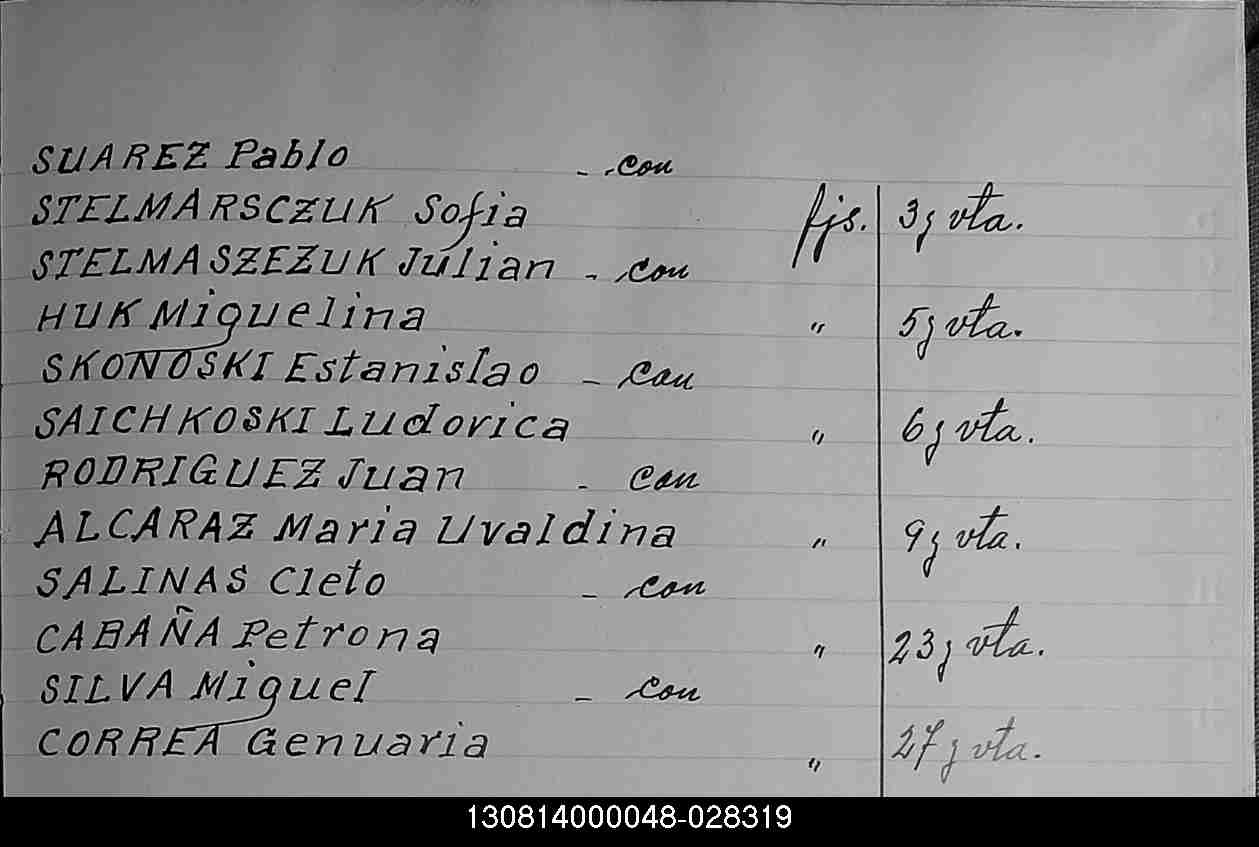 SUAREZ Pablo - con
STELMARSCZUK Sofia fjs. 3 y vta.
STELMASZEZUK Julian - con
HUK Miguelina " 5 y vta.
SKONOSKI Estanislao - con
SAICHKOSKI Ludovica " 6 y vta.
RODRIGUEZ Juan - con
ALCARAZ Maria Uvaldina " 9 y vta.
SALINAS Cleto - con
CABAÑA Petrona " 23 y vta.
SILVA Miguel - con
CORREA Genuaria " 27 y vta.
130814000048-028319